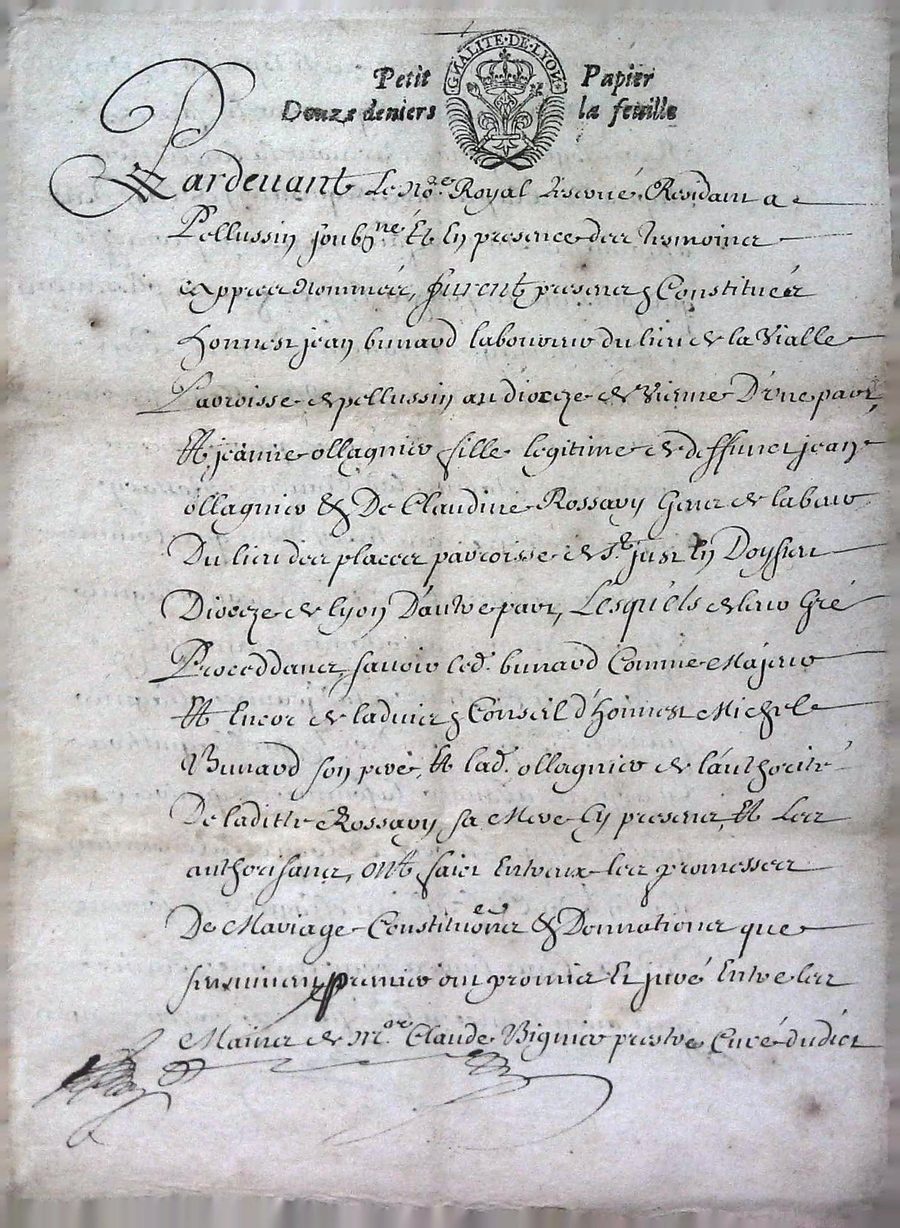 GNALITE·DE·LYON
Petit Papier
Douze deniers la feuille
Pardevant Le No.re Royal Residant a
Pellussin soubsné Et En presence des tesmoins
cy appres Nommés, furent presens & Constitués
Honnest jean bunard laboureur du lieu de la Vialle
Parroisse de pellussin au dioceze de Vienne D'vne part,
Et jeanne ollagnier fille legitime de deffunct jean
ollagnier & De Claudine Rossary Gens de labeur
Du lieu des places parroisse de St just En Doysieu
Dioceze de lyon D'autre part, Lesquels de leur Gré
Proceddants, sauoir led. bunard Comme Majeur
Et Encor de ladvis & Conseil d'Honnest Michel
Bunard son pere, Et lad. ollagnier de l'authorité
De laditte Rossary sa Mere Cy presens, Et Les
authorisans, ont faict Entreux les promesses
De Mariage Constitutions & Donnations que
s'ensuiuent premier ont promis Et juré Entre les
Mains de M.re Claude Vignier prestre Curé dudict